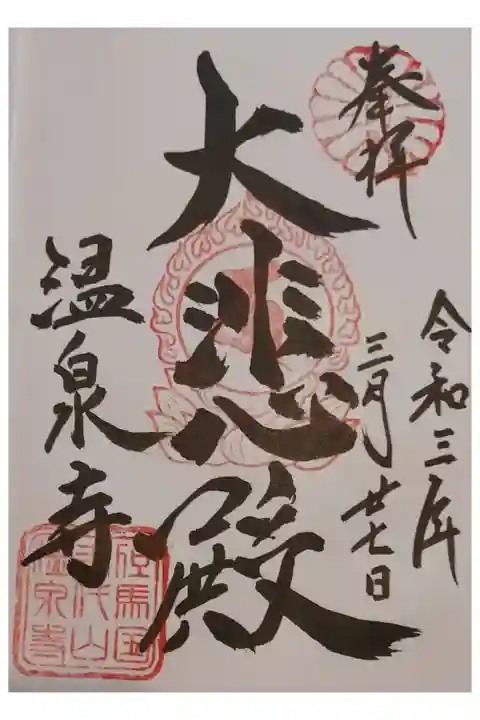 奉拝
令和三年
三月廿七日
大悲殿
温泉寺
但馬国
末代山
温泉寺